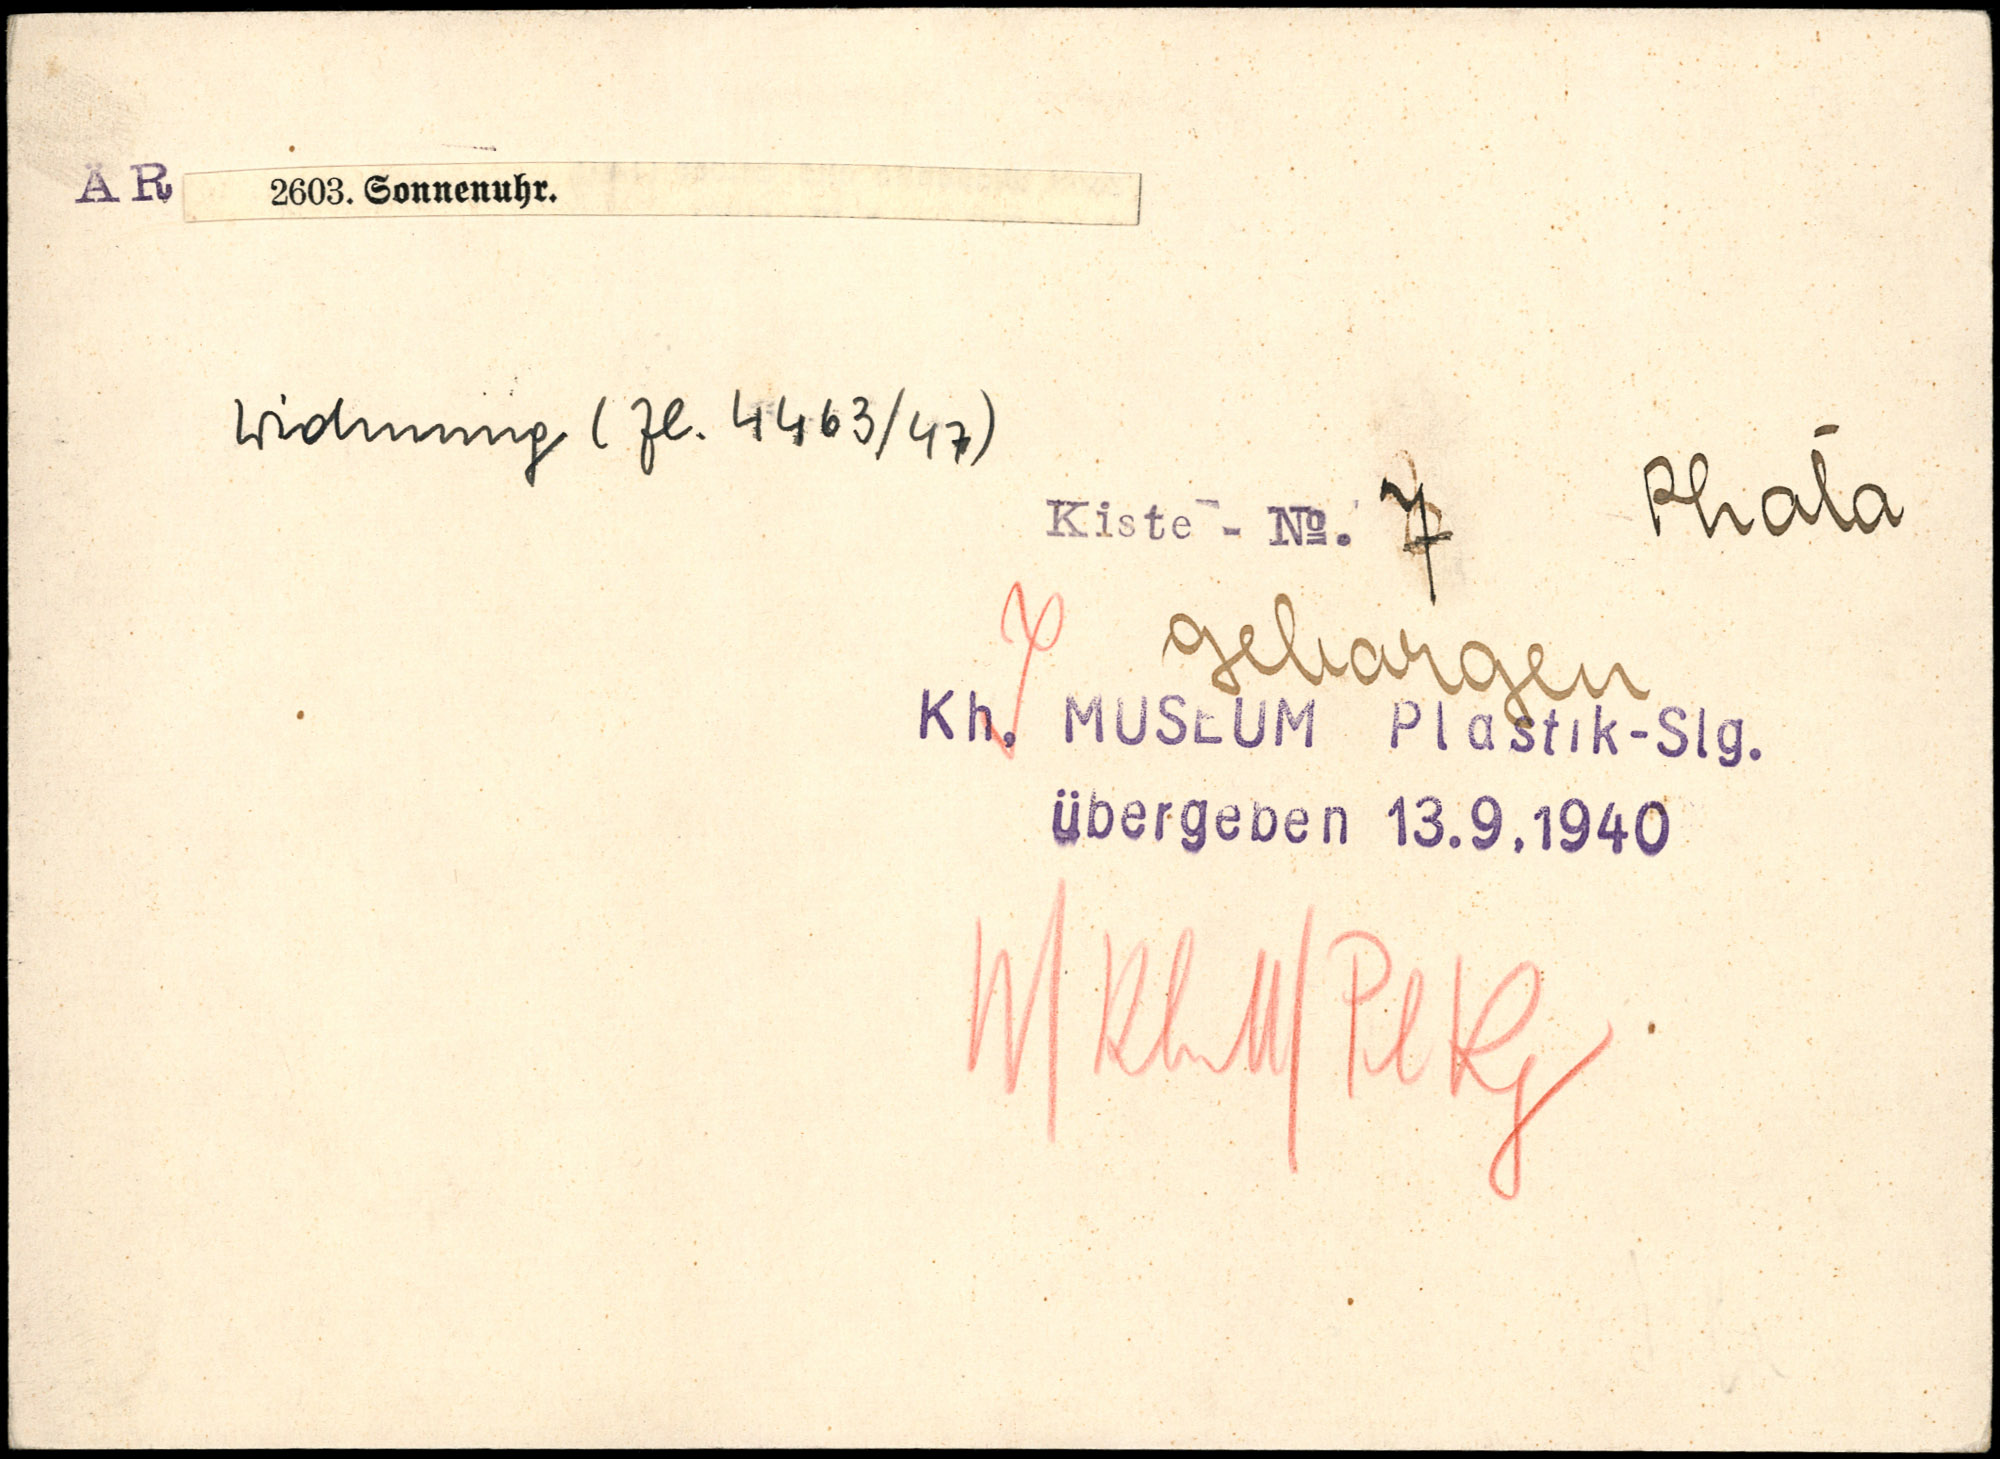 ÄR 2603. Sonnenuhr.
Widmung (Zl. 4463/47)
Kiste - No. 7
Photo
geborgen
7
Kh. MUSEUM Plastik-Slg.
übergeben 13.9.1940
W/KhM/Pl